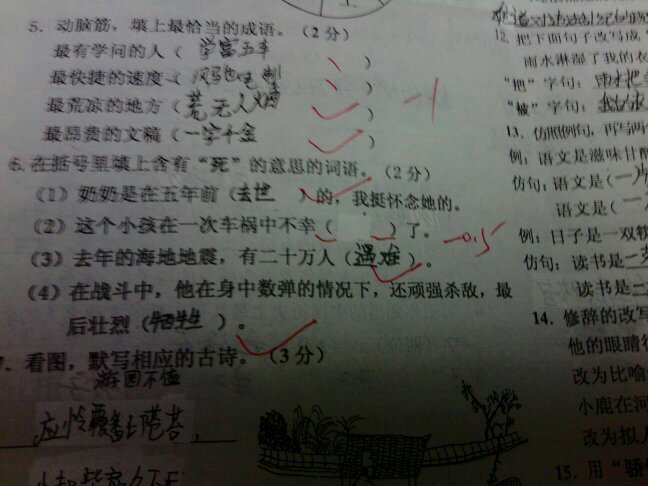 5. 动脑筋，填上最恰当的成语。（2分）
最有学问的人（学富五车）
最快捷的速度（风驰电掣）
最荒凉的地方（荒无人烟）
最昂贵的文稿（一字千金）
-1
6.在括号里填上含有“死”的意思的词语。（2分）
（1）奶奶是在五年前（去世）的，我挺怀念她的。
（2）这个小孩在一次车祸中不幸（ ）了。
-0.5
（3）去年的海地地震，有二十万人（遇难）。
（4）在战斗中，他在身中数弹的情况下，还顽强杀敌，最
后壮烈（牺牲）。
7. 看图，默写相应的古诗。（3分）
游园不值
应怜屐齿
12. 把下面句子改写成“
雨水淋湿了我的衣
“把”字句：雨水把
“被”字句：我的衣
13. 仿照例句，再写两个
例：语文是滋味甘醇
仿句：语文是（一
语文是（一
例：日子是一双软
仿句：读书是
读书是
14. 修辞的改写
他的眼睛
改为比喻
小鹿在河
改为拟人
15. 用“骄